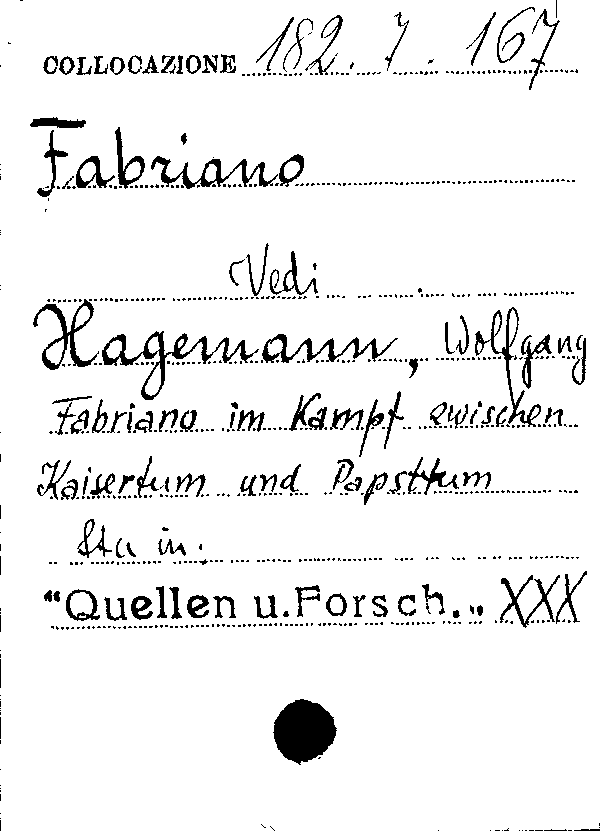 COLLOCAZIONE 182. 7. 167
Fabriano
Vedi
Hagemann, Wolfgang
Fabriano im Kampf zwischen
Kaisertum und Papsttum
Sta in:
"Quellen u. Forsch.„ XXX